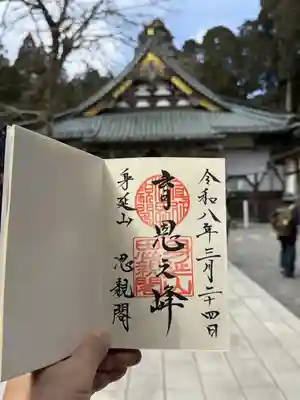 令和八年三月二十四日
育恩之峰
身延山　思親閣